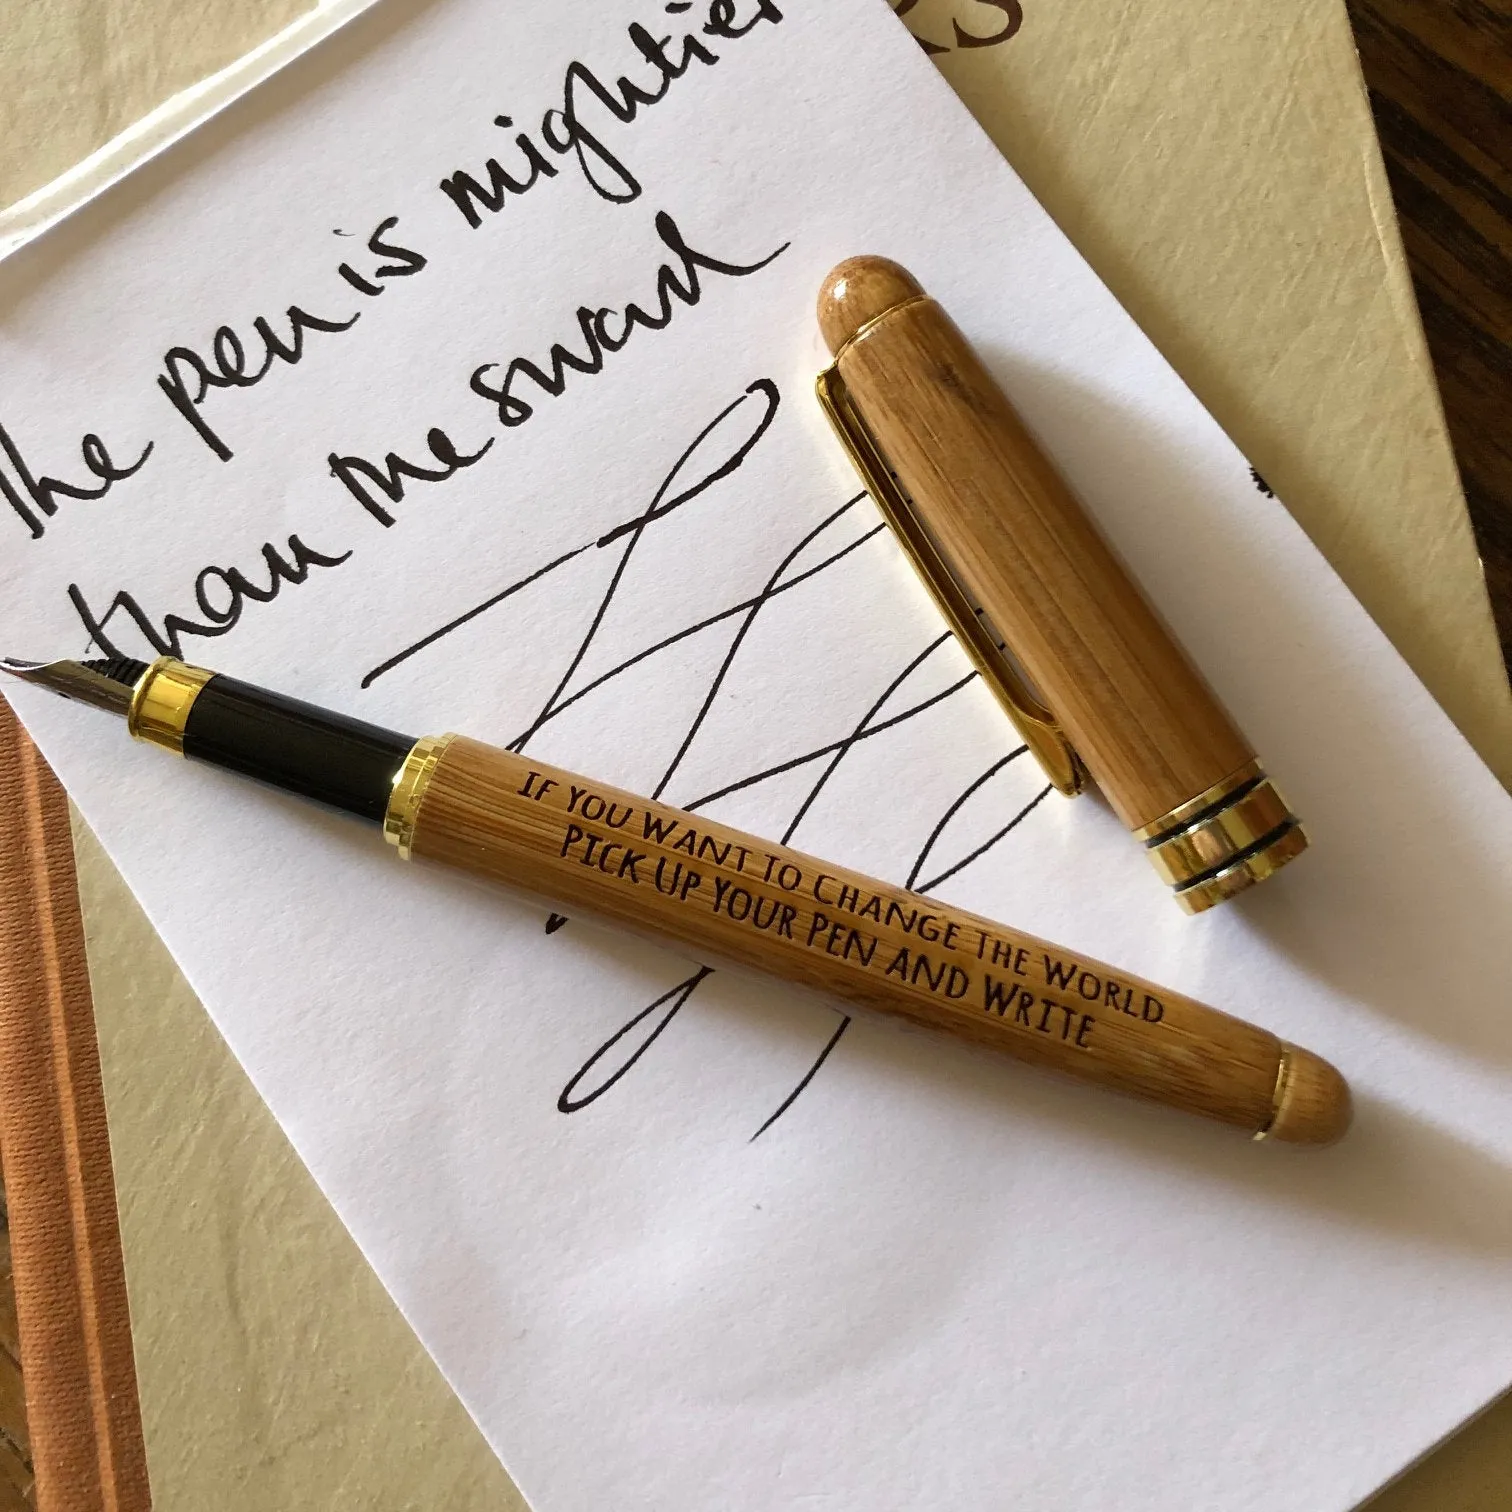 The pen is mightier
than the sword
IF YOU WANT TO CHANGE THE WORLD
PICK UP YOUR PEN AND WRITE